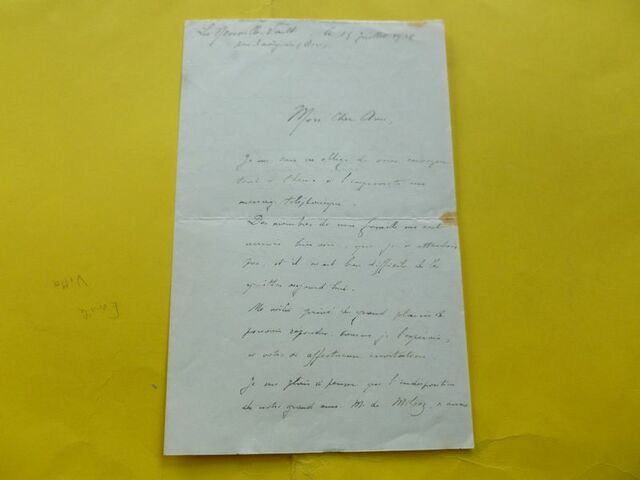 le 15 juillet 19
Mon cher Ami,
Je me suis vu obligé de vous envoyer
tout à l'heure à l'improviste un
message téléphonique.
Des membres de ma famille me sont
arrivés hier soir, que je n'attendais
pas, et il m'est bien difficile de les
quitter aujourd'hui.
Me voilà privé du grand plaisir de
pouvoir répondre, comme je l'espérais,
à votre si affectueuse invitation.
Je me plais à penser que l'indisposition
de notre grand ami M. de Milosz, n'aura
Vitta